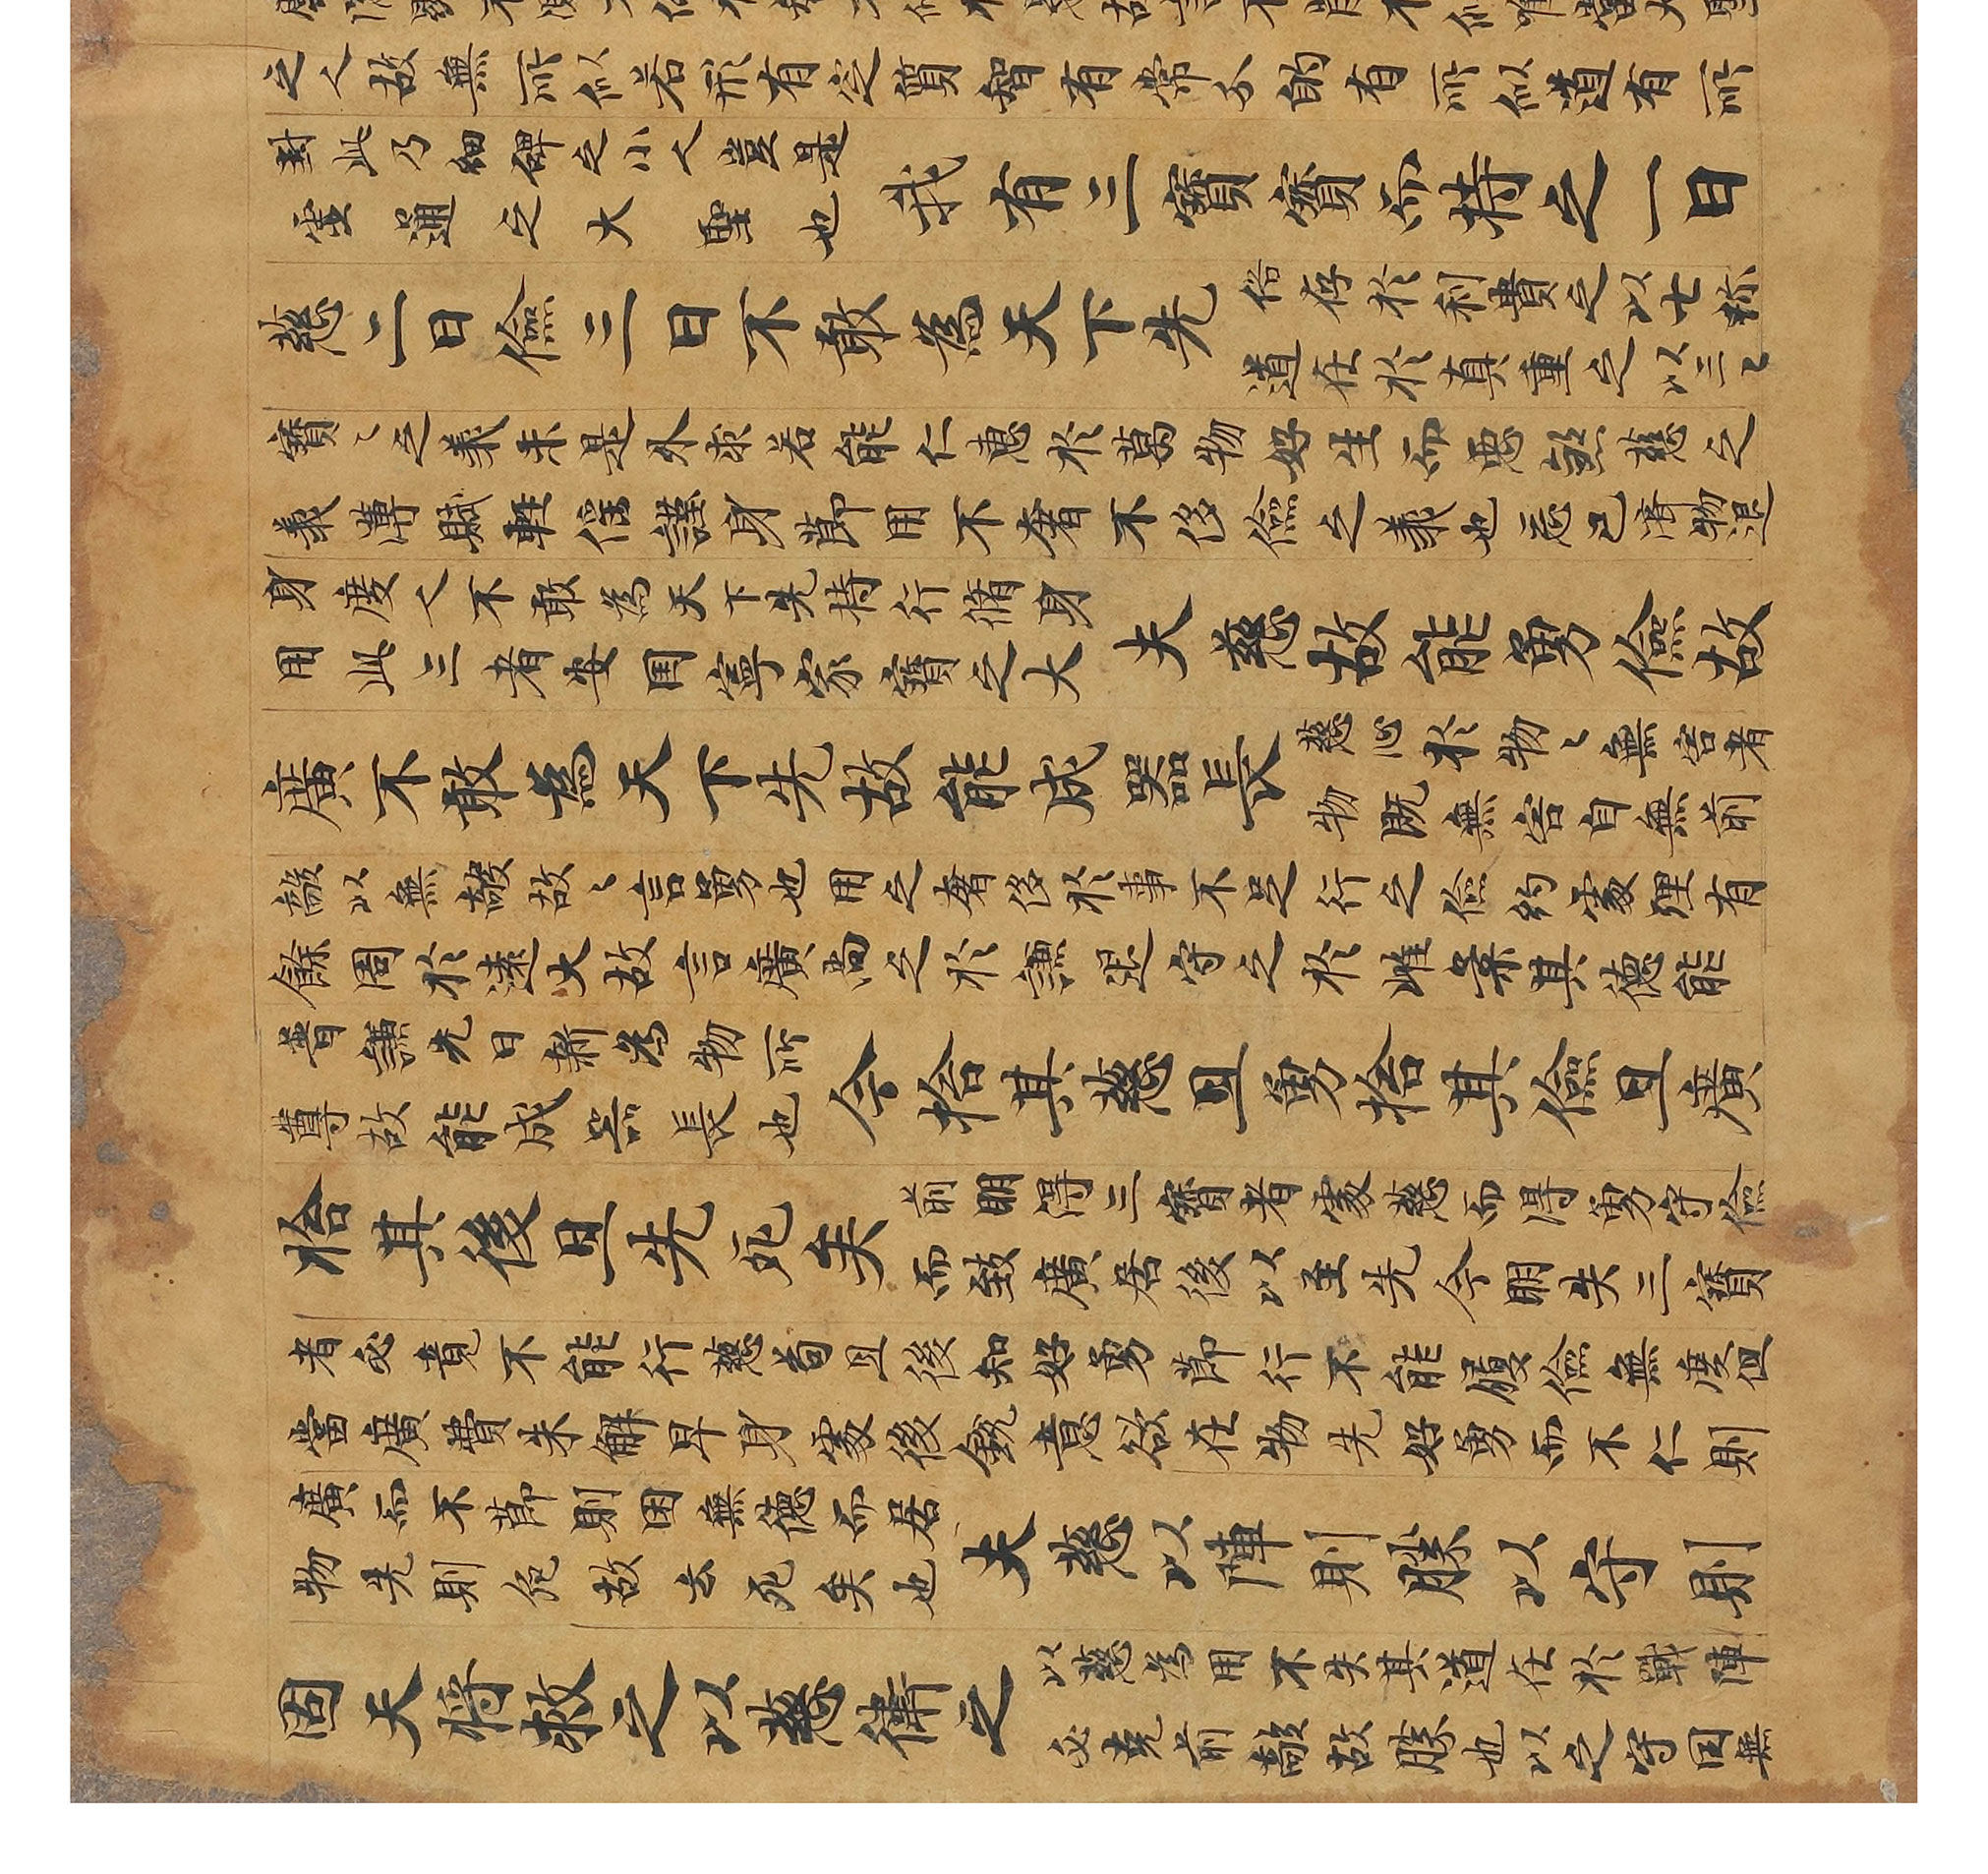 之人故無所似若形有定質智有常分的有所似道有所
對此乃細碑之小人豈是
虛通之大聖也
我有三寶寶而持之一曰
慈二曰儉三曰不敢為天下先
俗存於利貴之以七珎
道在於真重之以三〻
寶〻之義未是外求若能仁惠於萬物好生而惡煞慈之
義薄賦輕徭謹身節用不奢不侈儉之義也忘己濟物退
身度人不敢為天下先持行脩身
用此三者安国寧家寶之大
夫慈故能勇儉故
廣不敢為天下先故能成器長
慈心於物〻無害者
物既無害自無前
敵以無敵故〻言勇也用之奢侈於事不足行之儉約處理有
餘周於遠大故言廣尚之於謙退守之於雌柔其德能
普謙光日新為物所
尊故能成器長也
今捨其慈且勇捨其儉且廣
捨其後且先死矣
前明得三寶者處慈而得勇守儉
而致廣居後以至先今明失三寶
者必竟不能行慈苟且後知好勇節行不能履儉無度但
當廣費未解卑身處後銳意欲在物先好勇而不仁則
廣而不節則困無德而居
物先則危故云死矣也
夫慈以陣則勝以守則
固天將救之以慈衛之
以慈為用不失其道在於戰陣
必克前敵故勝也以之守国無